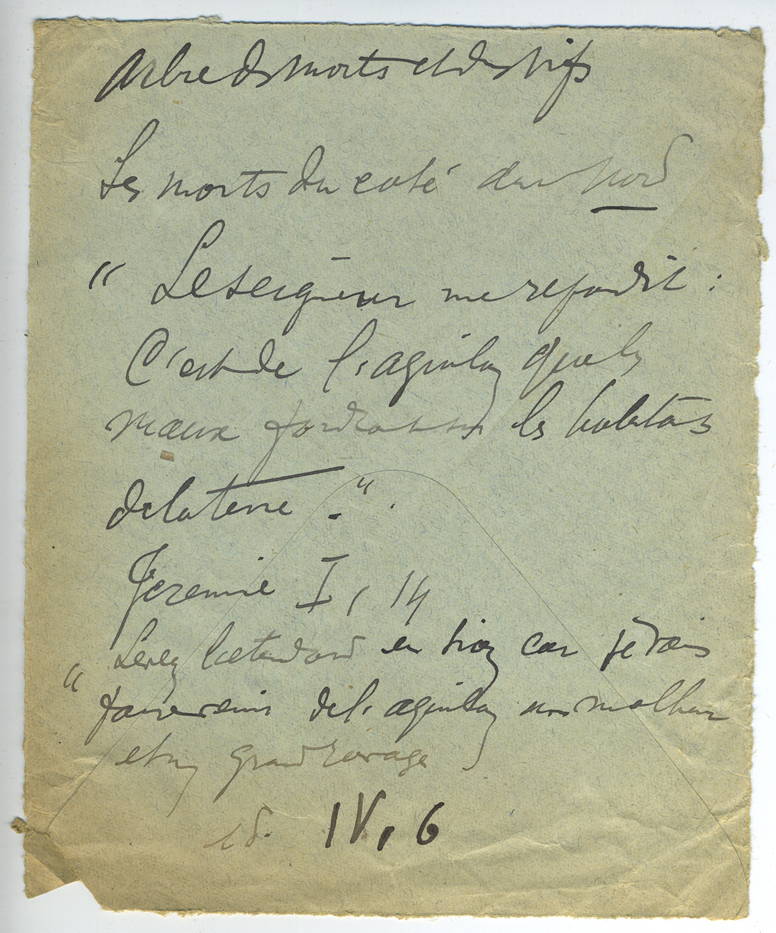 Arbre des morts et des vifs
Les morts du coté du Nord
" Le seigneur me repondit :
C'est de l'aquilon que les
maux fondront sur les habitans
de la terre ."
Jeremie I, 14
" Levez l'etendard en Sion car je vais
faire venir de l'aquilon un malheur
et un grand ravage
id. IV, 6